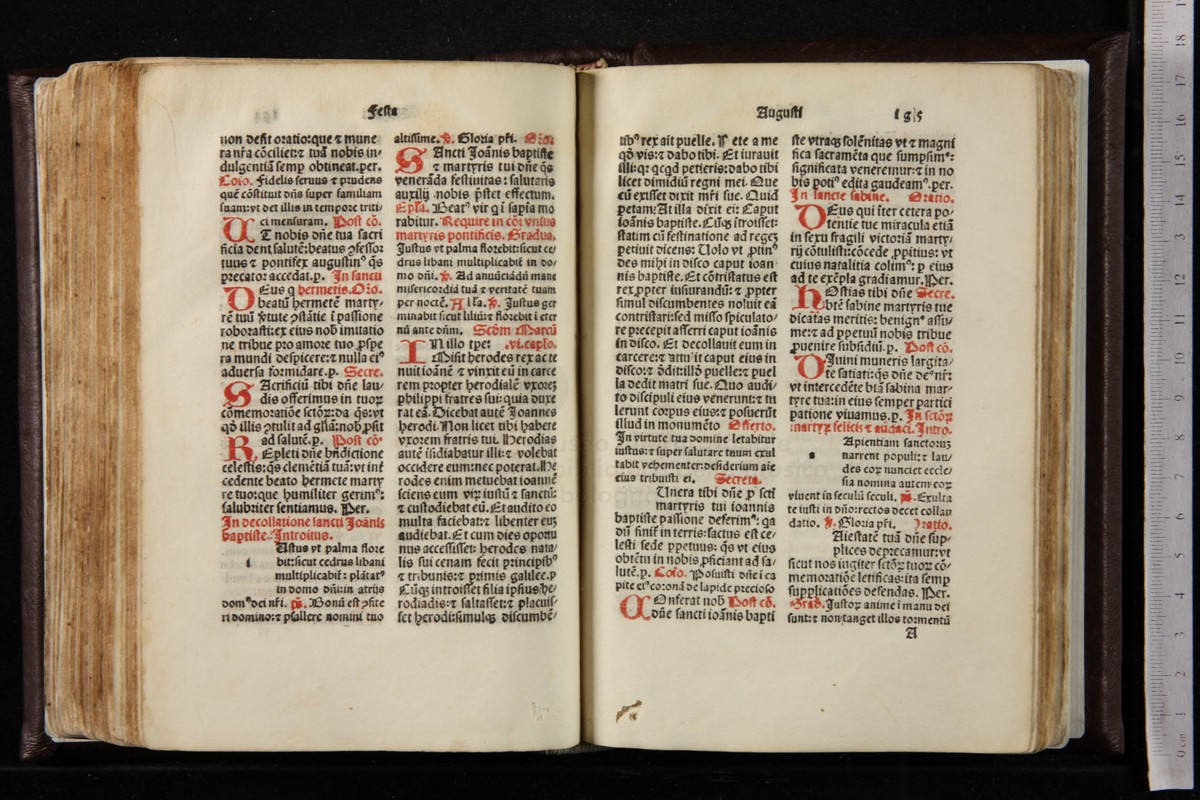 Festa
non deſit oratio: que ⁊ mune
ra nr̃a cōcilietꝛ ⁊ tuā nobis in⸗
dulgentiā ſemꝑ obtineat. per.
Coīo. Fidelis ſeruus ⁊ prudens
quē cōſtituit dn̄s super familiam
ſuam: vt det illis in tempore triti⸗
ci menſuram. Poſt cō.
UT nobis dn̄e tua ſacri
ficia dent ſalutē: beatus ꝯfeſſor
tuus ⁊ pontifex auguſtin⁹ q̄s
p̄cator accedat. ꝑ. In ſancti
DEus q hermetis. Orō.
beatū hermetē marty⸗
rē tuū ꝟtute ꝯſtātie ī paſſione
roboraſti: ex eius nob̄ imitatio
ne tribue pro amore tuo ꝓſpe
ra mundi deſpicere: ⁊ nulla ei⁹
aduerſa formidare. ꝑ. Secre.
SAcrificiū tibi dn̄e lau⸗
dis offerimus in tuoꝝ
cōmemoratiōe ſctōꝝ: da q̄s: vt
qd̄ illis ꝯtulit ad gl̄iā: nob̄ ꝓſit
ad ſalutē. ꝑ. Poſt cō.
REpleti dn̄e bn̄dictione
celeſti: q̄s clemētiā tuā: vt int̄
cedente beato hermete marty
re tuo: que humiliter gerim⁹:
ſalubriter ſentiamus. Per.
In decollatione ſancti Joānis
baptiſte. Introitus.
Juſtus vt palma flore
bit: ſicut cedrus libani
multiplicabiť: plātat⁹
in domo dn̄i: in atrijs
dom⁹ dei nr̄i. ps̄. Bonū eſt ꝯfite
ri domino: ⁊ pſallere nomini tuo
altiſſime. ꝟ. Gloria pr̄i. Orō.
SAncti Joānis baptiſte
⁊ martyris tui dn̄e q̄s
venerāda feſtiuitas: ſalutaris
auxilij nobis p̄ſtet effectum.
Epl̄a. Beat⁹ vir q ī ſapia mo
rabitur. Require in cōi vnius
martyris pontificis. Gradua.
Juſtus vt palma florebit: ſicut ce⸗
drus libani multiplicabiť in do⸗
mo dn̄i. ꝟ. Ad anuūciādū mane
miſericordiā tuā ⁊ veritatē tuam
per noctē. Alľa. ꝟ. Juſtus ger
minabit ſicut liliū: ⁊ florebit ī eter
nū ante dn̄m. Scd̄m Marcū
IN illo tp̄e: .vi. caplo.
Miſit herodes rex ac te
nuit ioānē ⁊ vinxit eū in carce
rem propter herodialē vxoreꝫ
philippi fratres ſui: quia duxe
rat eā. Dicebat autē Joannes
herodi. Non licet tibi habere
vxorem fratris tui. Herodias
autē īſidiabatur illi: ⁊ volebat
occidere eum: nec poterat. He
rodes enim metuebat ioannē
ſciens eum viꝝ iuſtū ⁊ ſanctū:
⁊ cuſtodiebat eū. Et audito eo
multa faciebat: ⁊ libenter euꝫ
audiebat. Et cum dies oportu
nus acceſſiſſet: herodes nata⸗
lis ſui cenam fecit principib⁹
⁊ tribunis: ⁊ primis galilee. ꝑ
Cūꝗ introiſſet filia ipſius he⸗
rodiadis: ⁊ ſaltaſſet: ⁊ placuiſ⸗
ſet herodi: ſimulꝗ diſcumbē⸗
Auguſti 195
tib⁹ rex ait puelle. Pete a me
qd̄ vis: ⁊ dabo tibi. Et iurauit
illi: qꝛ qcqd petieris: dabo tibi
licet dimidiū regni mei. Que
cū exiſſet dixit mr̄i ſue. Quid
petam: At illa dixit ei: Caput
ioānis baptiſte. Cūꝗ ītroiſſet:
ſtatim cū feſtinatione ad regeꝫ
petiuit dicens: Uolo vt ꝓtin⁹
des mihi in diſco caput ioan
nis baptiſte. Et cōtriſtatus eſt
rex ꝓpter iuſiurandū: ⁊ ꝓpter
ſimul diſcumbentes noluit eā
contriſtari: ſed miſſo ſpiculato⸗
re precepit afferri caput ioānis
in diſco. Et decollauit eum in
carcere: ⁊ attulit caput eius in
diſco: ⁊ dōdit: illō puelle: ⁊ puel
la dedit matri ſue. Quo audi⸗
to diſcipuli eius venerunt: ⁊ tu
lerunt corpus eius: ⁊ poſuerūt
illud in monumēto Offerto.
In virtute tua domine letabitur
iuſtus: ⁊ super ſalutare tuum exul
tabit vehementer: deſiderium aīe
eius tribuiſti ei. Secreta.
Unera tibi dn̄e ꝓ ſcti
martyris tui ioannis
baptiſte paſſione deferim⁹: qa
dū finiť in terris: factus eſt ce⸗
leſti ſede ꝑpetuus: q̄s vt eius
obtētu in nobis ꝓficiant ad ſa⸗
lutē. ꝑ. Coīo. Poſuiſti dn̄e ī ca
pite ei⁹ coronā de lapide precioſo
COnferat nob̄ Poſt cō.
dn̄e ſancti ioānis bapti
ſte vtraꝗ ſolēnitas vt ⁊ magni
fica ſacramēta que ſumpſim⁹:
ſignificata veneremur: ⁊ in no
bis poti⁹ edita gaudeam⁹. per.
In ſancte ſabine. Oratio.
DEus qui īter cetera po⸗
tentie tue miracula etiā
in ſexu fragili victoriā marty⸗
rij cōtuliſti: cōcede ꝓpitius: vt
cuius natalitia colim⁹: ꝑ eius
ad te exēpla gradiamur. Per.
HOſtias tibi dn̄e Secre.
btē̄ ſabine martyris tue
dicatas meritis: benign⁹ aſſu⸗
me: ⁊ ad ꝑpetuū nobis tribue
ꝓuenire ſubſidiū. ꝑ. Poſt cō.
DIuini muneris largita⸗
te ſatiati: q̄s dn̄e de⁹ nr̄:
vt intercedēte btā ſabina mar⸗
tyre tua: in eius ſemper partici
patione viuamus. ꝑ. In ſctōꝝ
martyꝝ felicis ⁊ audacti. Intro.
Apientiam ſanctorum
narrent populi: ⁊ lau⸗
des eoꝝ nunciet eccle⸗
ſia nomina autem eoꝝ
viuent in ſeculū ſeculi. ps̄. Exulta
te iuſti in dn̄o: rectos decet collau
datio. ꝟ. Gloria pr̄i. Oratio.
Aieſtatē tuā dn̄e ſup⸗
plices deprecamur: vt
ſicut nos iugiter ſctōꝝ tuoꝝ cō⸗
memoratiōe letificas: ita ſemꝑ
ſupplicatiōes defendas. Per.
Grad. Juſtoꝝ anime ī manu dei
ſunt: ⁊ non tanget illos tormentū
A